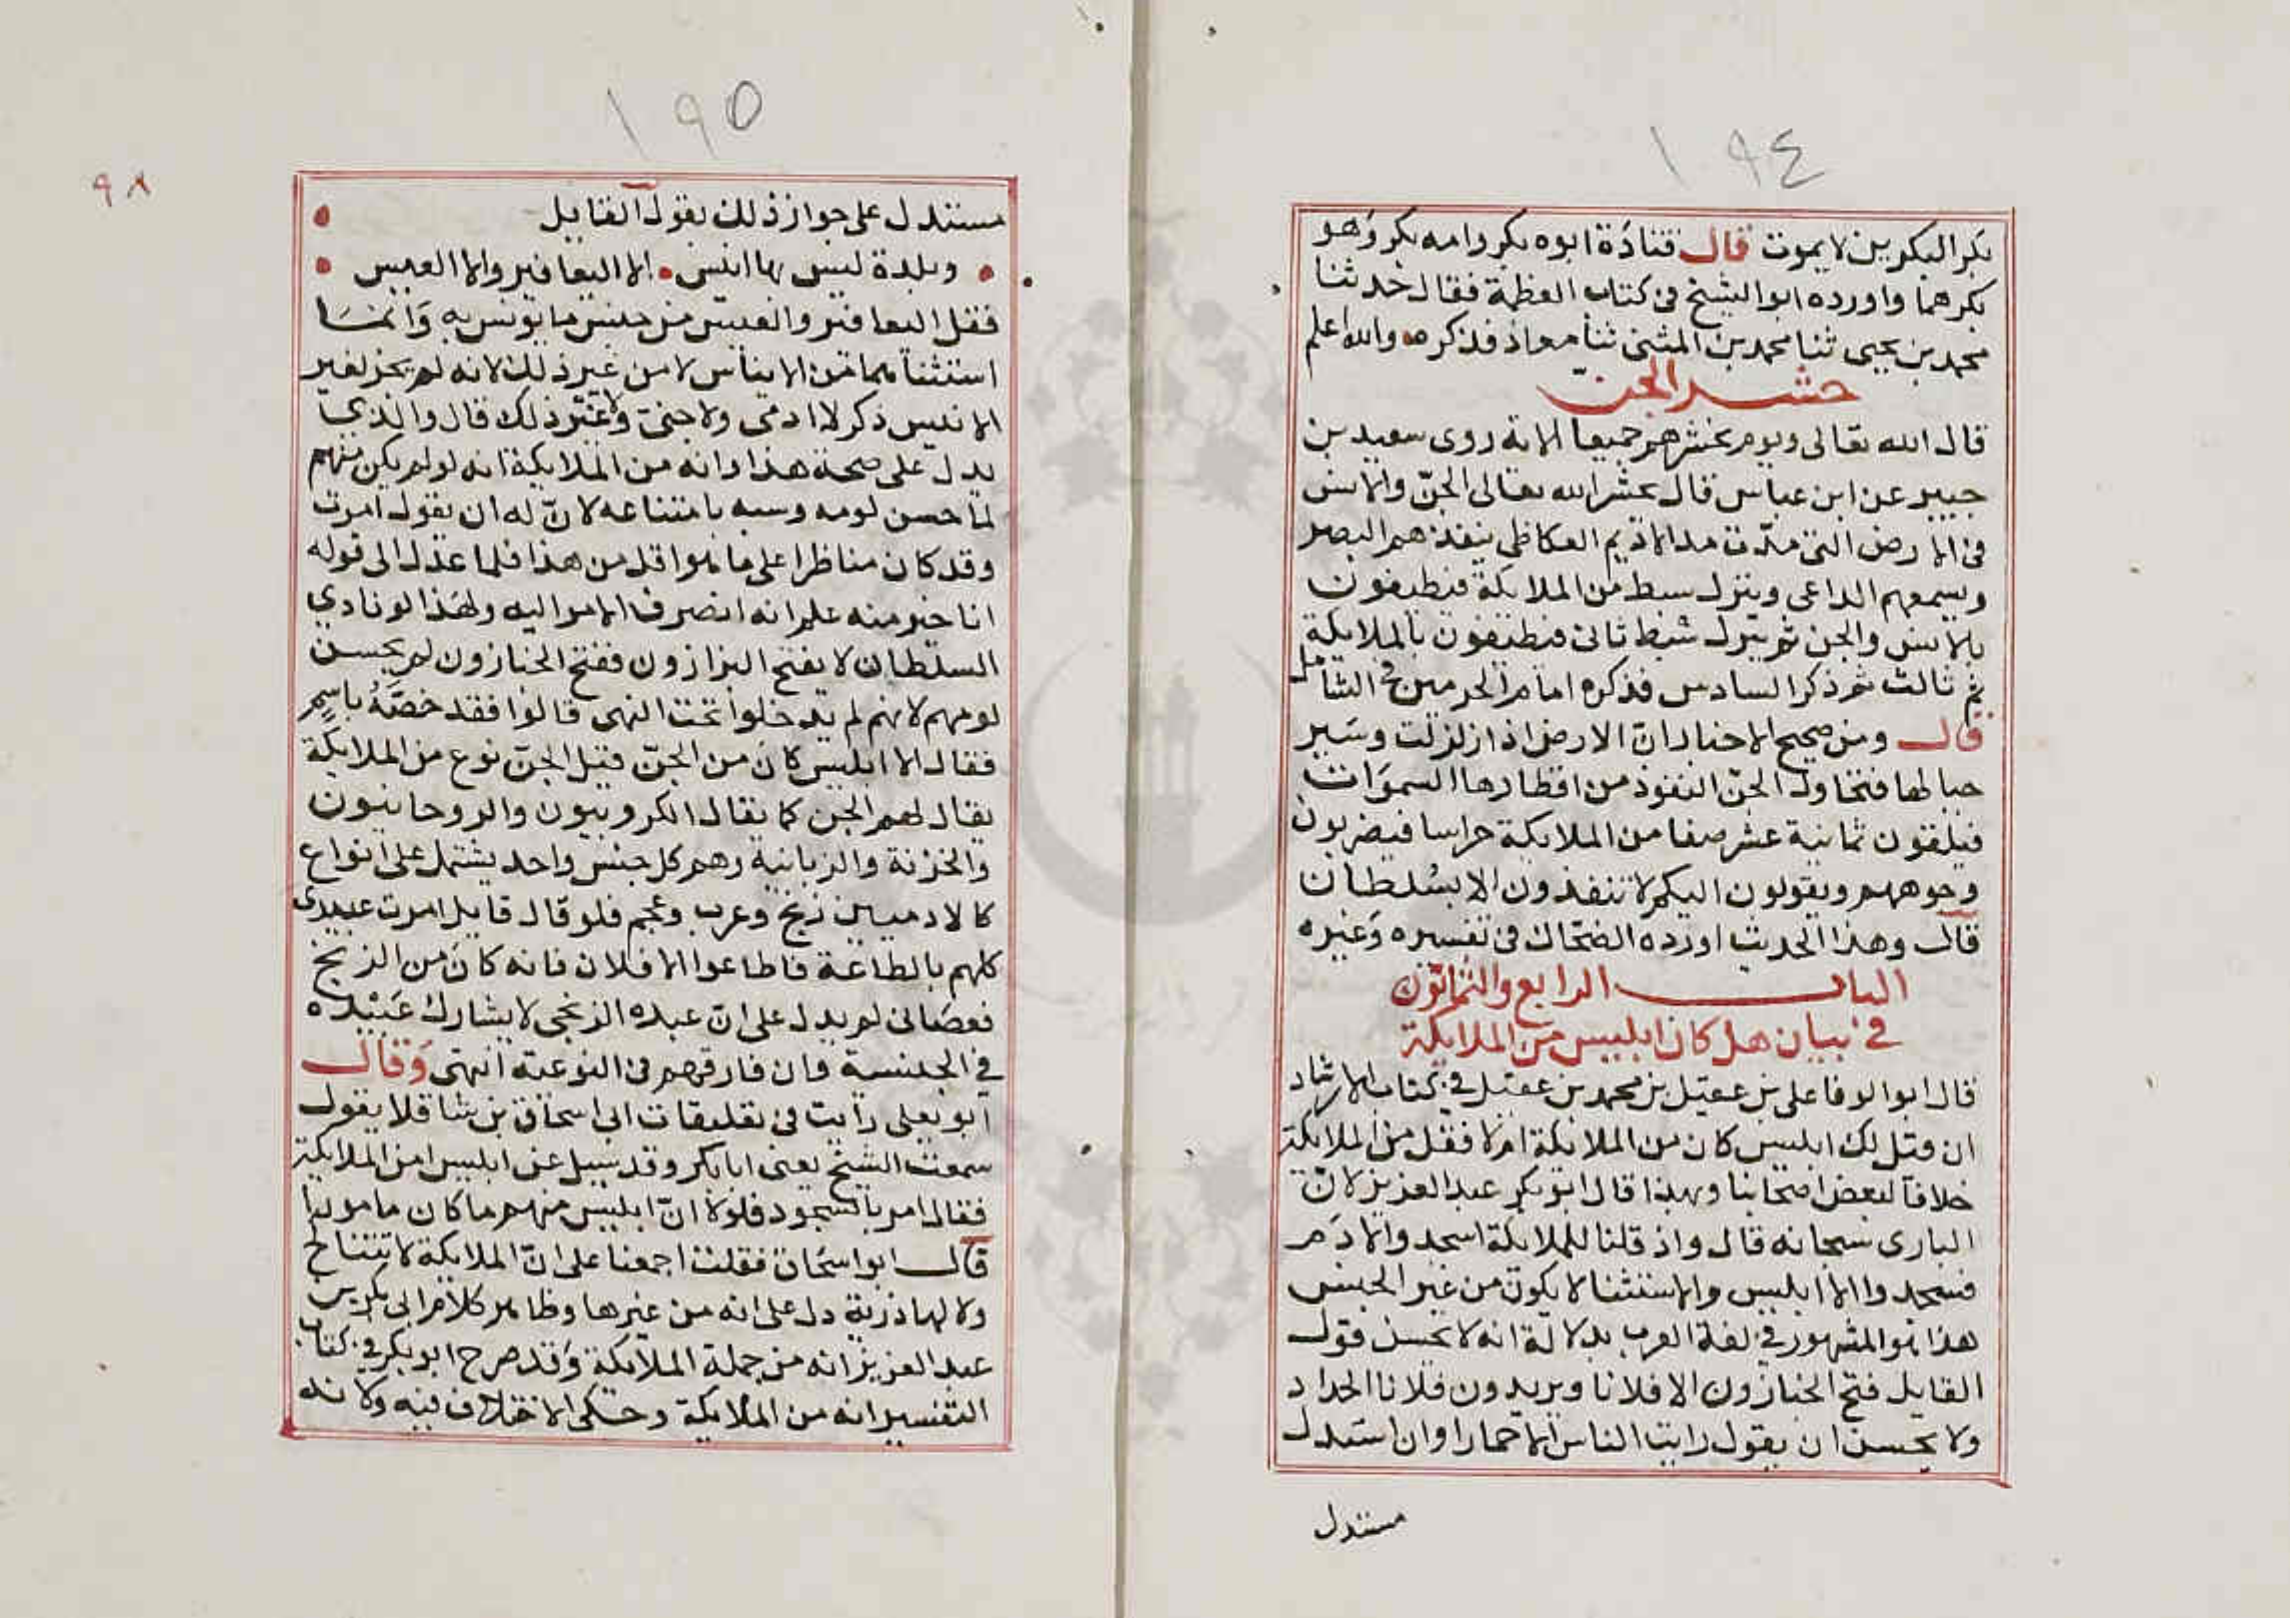 ١٩٤
بكر البكرين لا يموت قال قتادة ابوه بكر وامه بكر وهو
بكرهما واورده ابو الشيخ في كتاب العظمة فقال حدثنا
محمد بن يحيى ثنا محمد بن المثنى ثنا معاذ فذكره والله اعلم
حشر الجن
قال الله تعالى ويوم نحشرهم جميعا الاية روى سعيد بن
جبير عن ابن عباس قال يحشر الله تعالى الجن والانس
في الارض التي مدت مد الاديم العكاظي ينفذهم البصر
ويسمعهم الداعى وينزل سبط من الملايكة فيطيفون
بالانس والجن ثم ينزل سبط ثانى فيطيفون بالملايكة
ثم ثالث ثم ذكر السادس فذكره امام الحرمين في الشامل
قال ومن صحيح الاخبار ان الارض اذا زلزلت وسير
جبالها فتحاول الجن النفوذ من اقطارها السموات
فيلقون ثمانية عشر صفا من الملايكة حراسا فيضربون
وجوههم ويقولون اليكم لا تنفذون الا بسلطان
قال وهذا الحديث اورده الضحاك في تفسيره وغيره
الباب الرابع والثمانون
في بيان هل كان ابليس من الملايكة
قال ابو الوفا على بن عقيل بن محمد بن عقيل في كتاب الارشاد
ان قيل لك ابليس كان من الملايكة ام لا فقل من الملايكة
خلافا لبعض اصحابنا وبهذا قال ابو بكر عبد العزيز لان
البارى سبحانه قال واذ قلنا للملايكة اسجدوا لادم
فسجدوا الا ابليس والاستثنا لا يكون من غير الجنس
هذا هو المشهور في لغة العرب بدلالة انه لا يحسن قول
القايل فتح الخبازون الا فلانا ويريدون فلانا الحداد
ولا يحسن ان يقول رايت الناس الا حمارا وان استدل
مستدل
١٩٥
٩٨
مستدل على جواز ذلك بقول القايل
وبلدة ليس بها انيس الا اليعافير والا العيس
فقل اليعافير والعيس من جنس ما يونس به وانما
استثنا مما من الايناس لا من غير ذلك لانه لم يجز لغير
الانيس ذكر لا ادمى ولا جنى ولا غير ذلك قال والذي
يدل على صحة هذا وانه من الملايكة انه لو لم يكن منهم
لما حسن لومه وسبه بامتناعه لان له ان يقول امرت
وقد كان مناظرا على ما هو اقل من هذا فلما عدل الى قوله
انا خير منه علم انه انصرف الامر اليه ولهذا لو نادي
السلطان لا يفتح البزازون ففتح الخبازون لم يحسن
لومهم لانهم لم يدخلوا تحت النهى قالوا فقد خصه باسم
فقال الا ابليس كان من الجن قيل الجن نوع من الملايكة
يقال لهم الجن كما يقال الكروبيون والروحانيون
والخزنة والزبانية وهم كل جنس واحد يشتمل على انواع
كالادميين زنج وعرب وعجم فلو قال قايل امرت عبيدى
كلهم بالطاعة فاطاعوا الا فلان فانه كان من الزنج
فعصانى لم يدل على ان عبده الزنجى لا يشارك عبيده
في الجنسية وان فارقهم في النوعية انتهى وقال
ابو يعلى رايت في تعليقات ابى اسحاق بن شاقلا يقول
سمعت الشيخ يعنى ابا بكر وقد سيل عن ابليس امن الملايكة
فقال امر بالسجود فلولا ان ابليس منهم ما كان مامورا
قال ابو اسحاق فقلت اجمعنا على ان الملايكة لا تتناكح
ولا لها ذرية دل على انه من غيرها وظاهر كلام ابى بكر بن
عبد العزيز انه من جملة الملايكة وقد صرح ابو بكر في كتاب
التفسير انه من الملايكة وحكى الاختلاف فيه وكانه